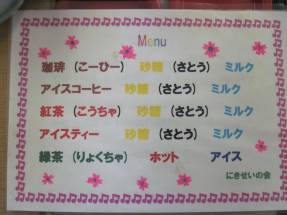 Menu
珈琲（こーひー） 砂糖（さとう） ミルク
アイスコーヒー 砂糖（さとう） ミルク
紅茶（こうちゃ） 砂糖（さとう） ミルク
アイスティー 砂糖（さとう） ミルク
緑茶（りょくちゃ） ホット アイス
にきせいの会